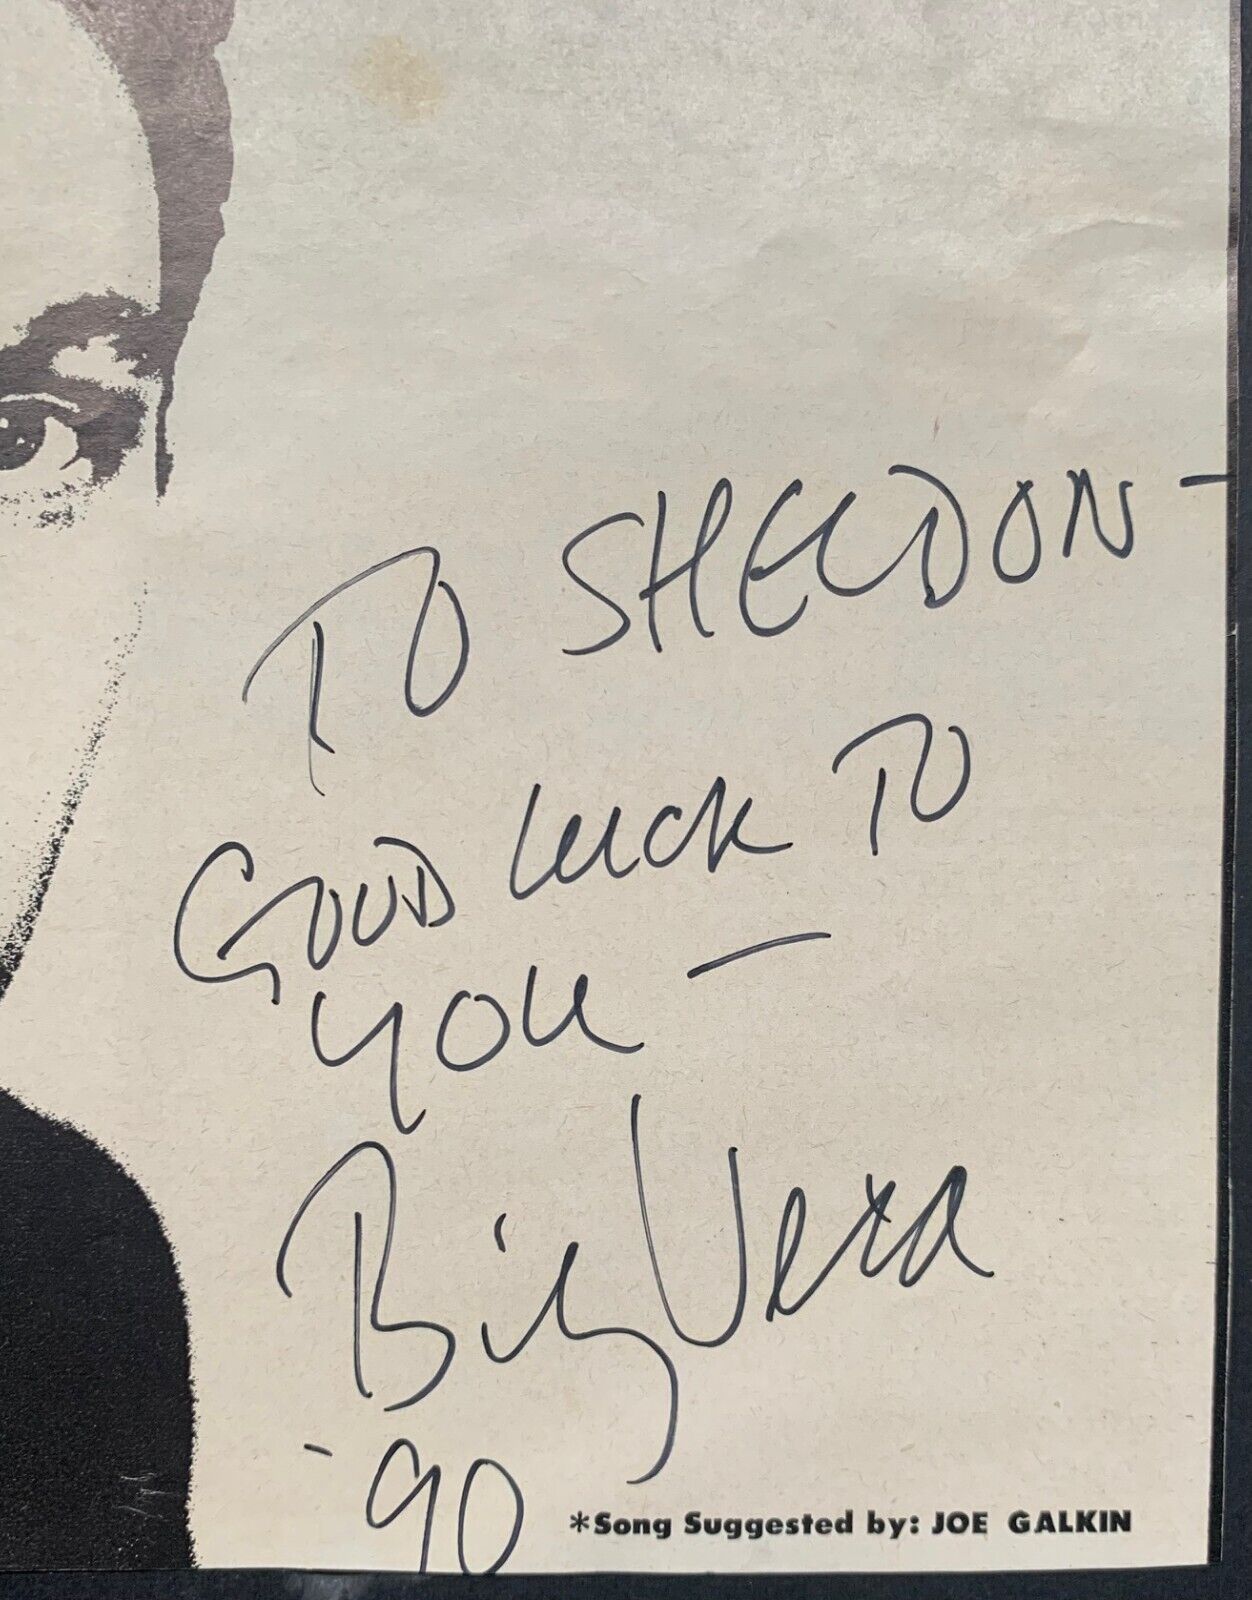 TO SHELDON -
GOOD LUCK TO
YOU -
Billy Vera
'90
*Song Suggested by: JOE GALKIN